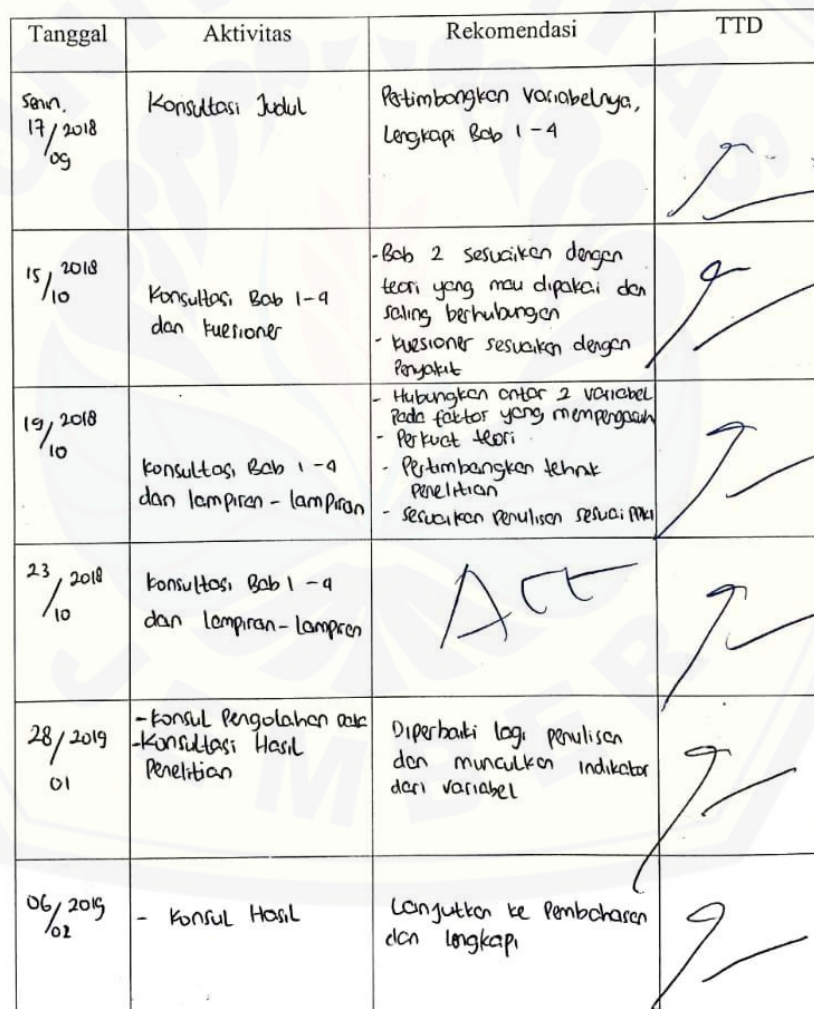 Tanggal Aktivitas Rekomendasi TTD
Senin,
17/2018
09
Konsultasi Judul
Pertimbangkan variabelnya,
Lengkapi Bab 1-4
15/2018
10
Konsultasi Bab 1-4
dan kuesioner
- Bab 2 sesuaikan dengan
teori yang mau dipakai dan
saling berhubungan
- kuesioner sesuaikan dengan
Penyakit
19/2018
10
Konsultasi Bab 1-4
dan lampiran-lampiran
- Hubungkan antar 2 variabel
Pada faktor yang mempengaruh
- Perkuat teori
- Pertimbangkan tehnik
Penelitian
- sesuaikan penulisan sesuai PPKI
23/2018
10
konsultasi Bab 1-4
dan lampiran-lampiran
ACC
28/2019
01
- konsul Pengolahan data
- Konsultasi Hasil
Penelitian
Diperbaiki lagi penulisan
dan munculkan indikator
dari variabel
06/2019
02
- Konsul Hasil
Lanjutkan ke Pembahasan
dan lengkapi
JEMBER